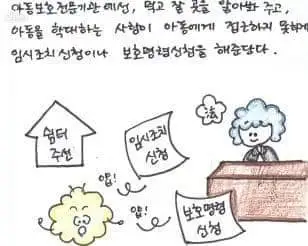 아동보호전문기관에선, 먹고 잘 곳을 알아봐 주고,
아동을 학대하는 사람이 아동에게 접근하지 못하게
임시조치신청이나 보호명령신청을 해준단다.
쉼터
주선
임시조치
신청
法
얍!
얍!
보호명령
신청